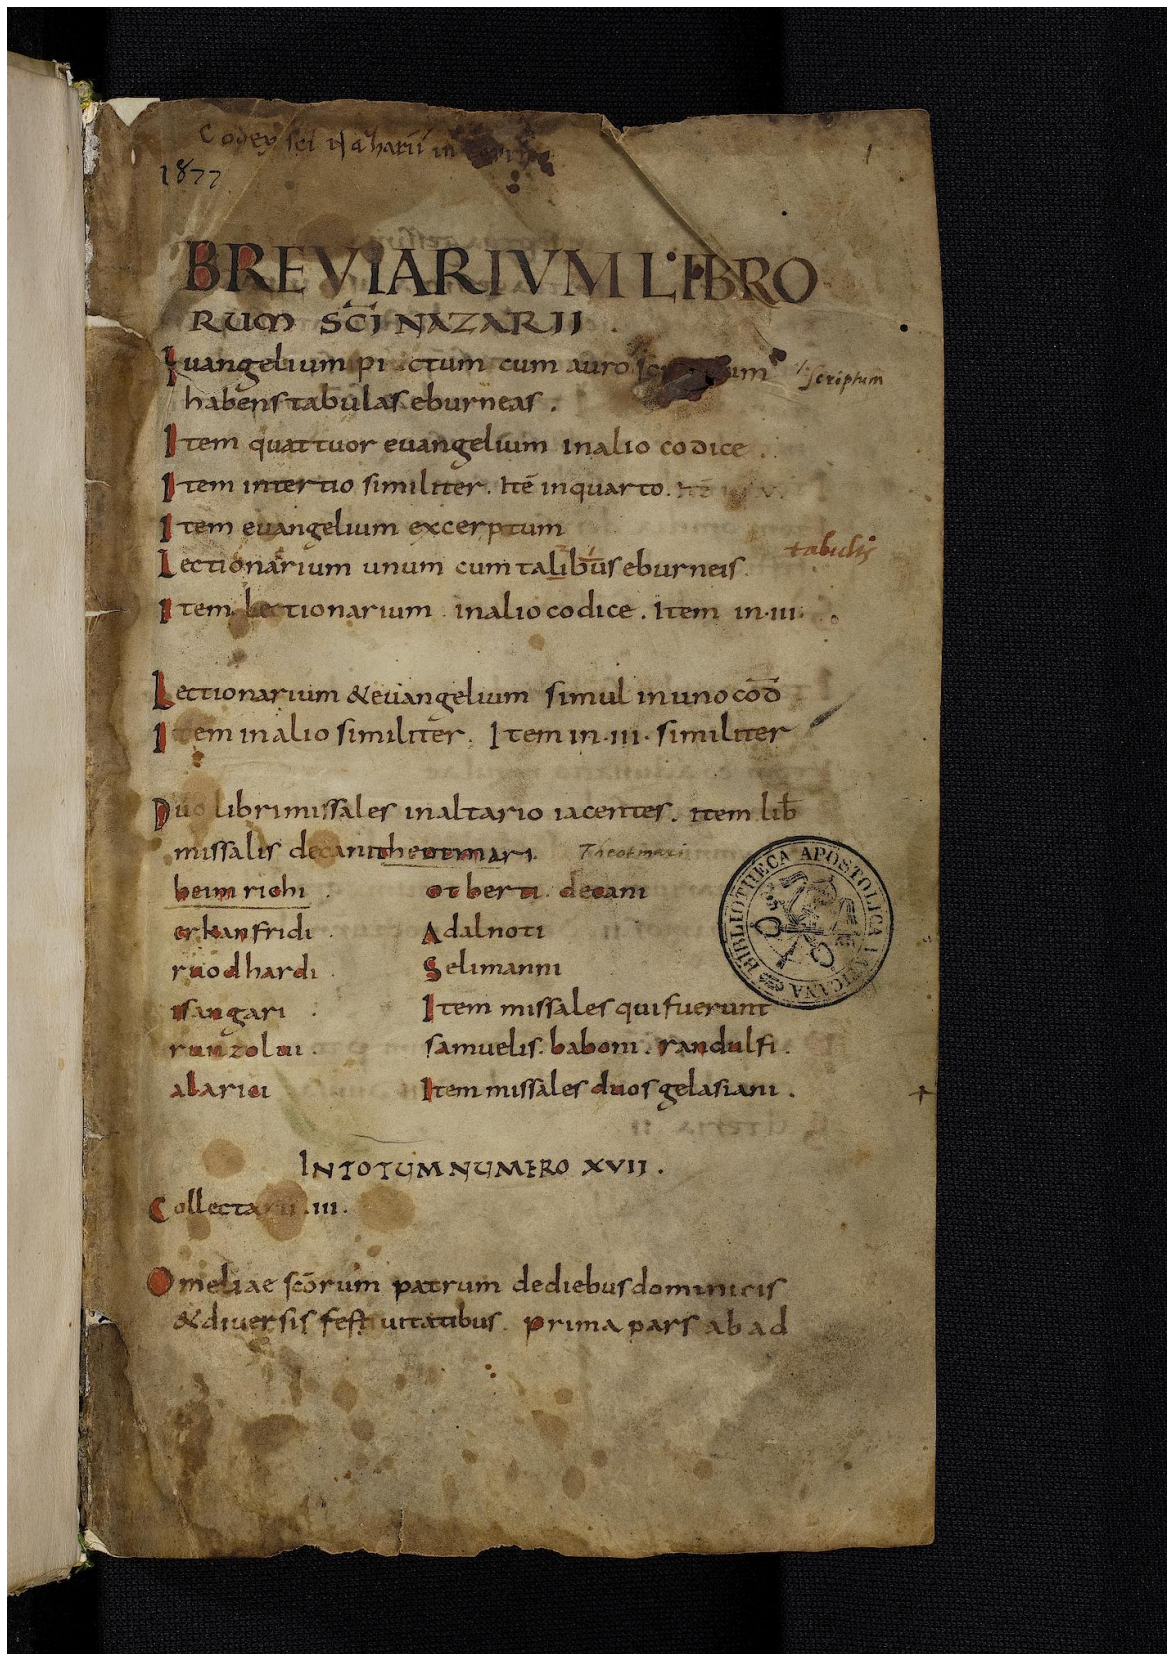 Codex sci Nazharii in
1
1877
BREVIARIVM LIBRO
RUM SCI NAZARII .
Euangelium pictum cum auro scriptum scriptum
habens tabulas eburneas .
Item quattuor euangelium inalio codice .
Item intertio similiter . Ite inquarto .
Item euangelium excerptum
tabulis
Lectionarium unum cum talibus eburneis .
Item Lectionarium inalio codice . Item in · iii ·
Lectionarium & euangelium simul in uno cod
Item in alio similiter . Item in · iii · similiter
Duo libri missales in altario iacentes . item lib
missalis decani theotmari . Theotmari
heimrichi . otberti decani
erkanfridi . Adalnoti
ruodhardi . Selimanni
isangari . Item missales qui fuerunt
runzolui . samuelis . baboni . randulfi .
alarici Item missales duos gelasiani .
INTOTUM NUMERO XVII .
Collectarii . iii .
Omeliae scorum patrum dediebus dominicis
& diversis festiuitatibus . prima pars ab ad
BIBLIOTHECA APOSTOLICA VATICANA